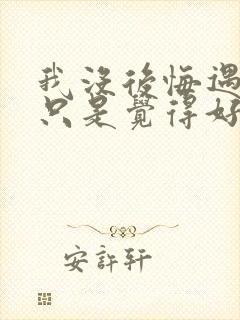 我沒後悔遇
只是覺得好
安許軒